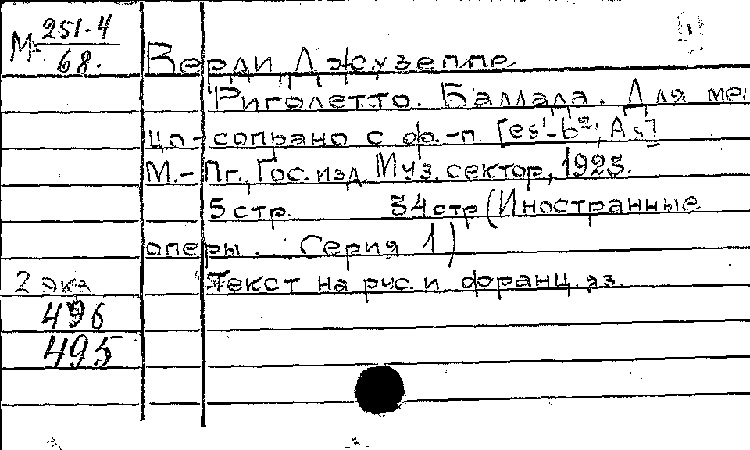 М 251-4
68.
Верди Джузеппе
Риголетто. Баллада. Для ме
цц-сопрано с ф-п [es¹-b²; As]
М.-Пг., Гос. изд. Муз. сектор, 1923.
5 стр. 34 стр (Иностранные
оперы. Серия 1)
2 экз Текст на рус. и франц. яз.
496
495